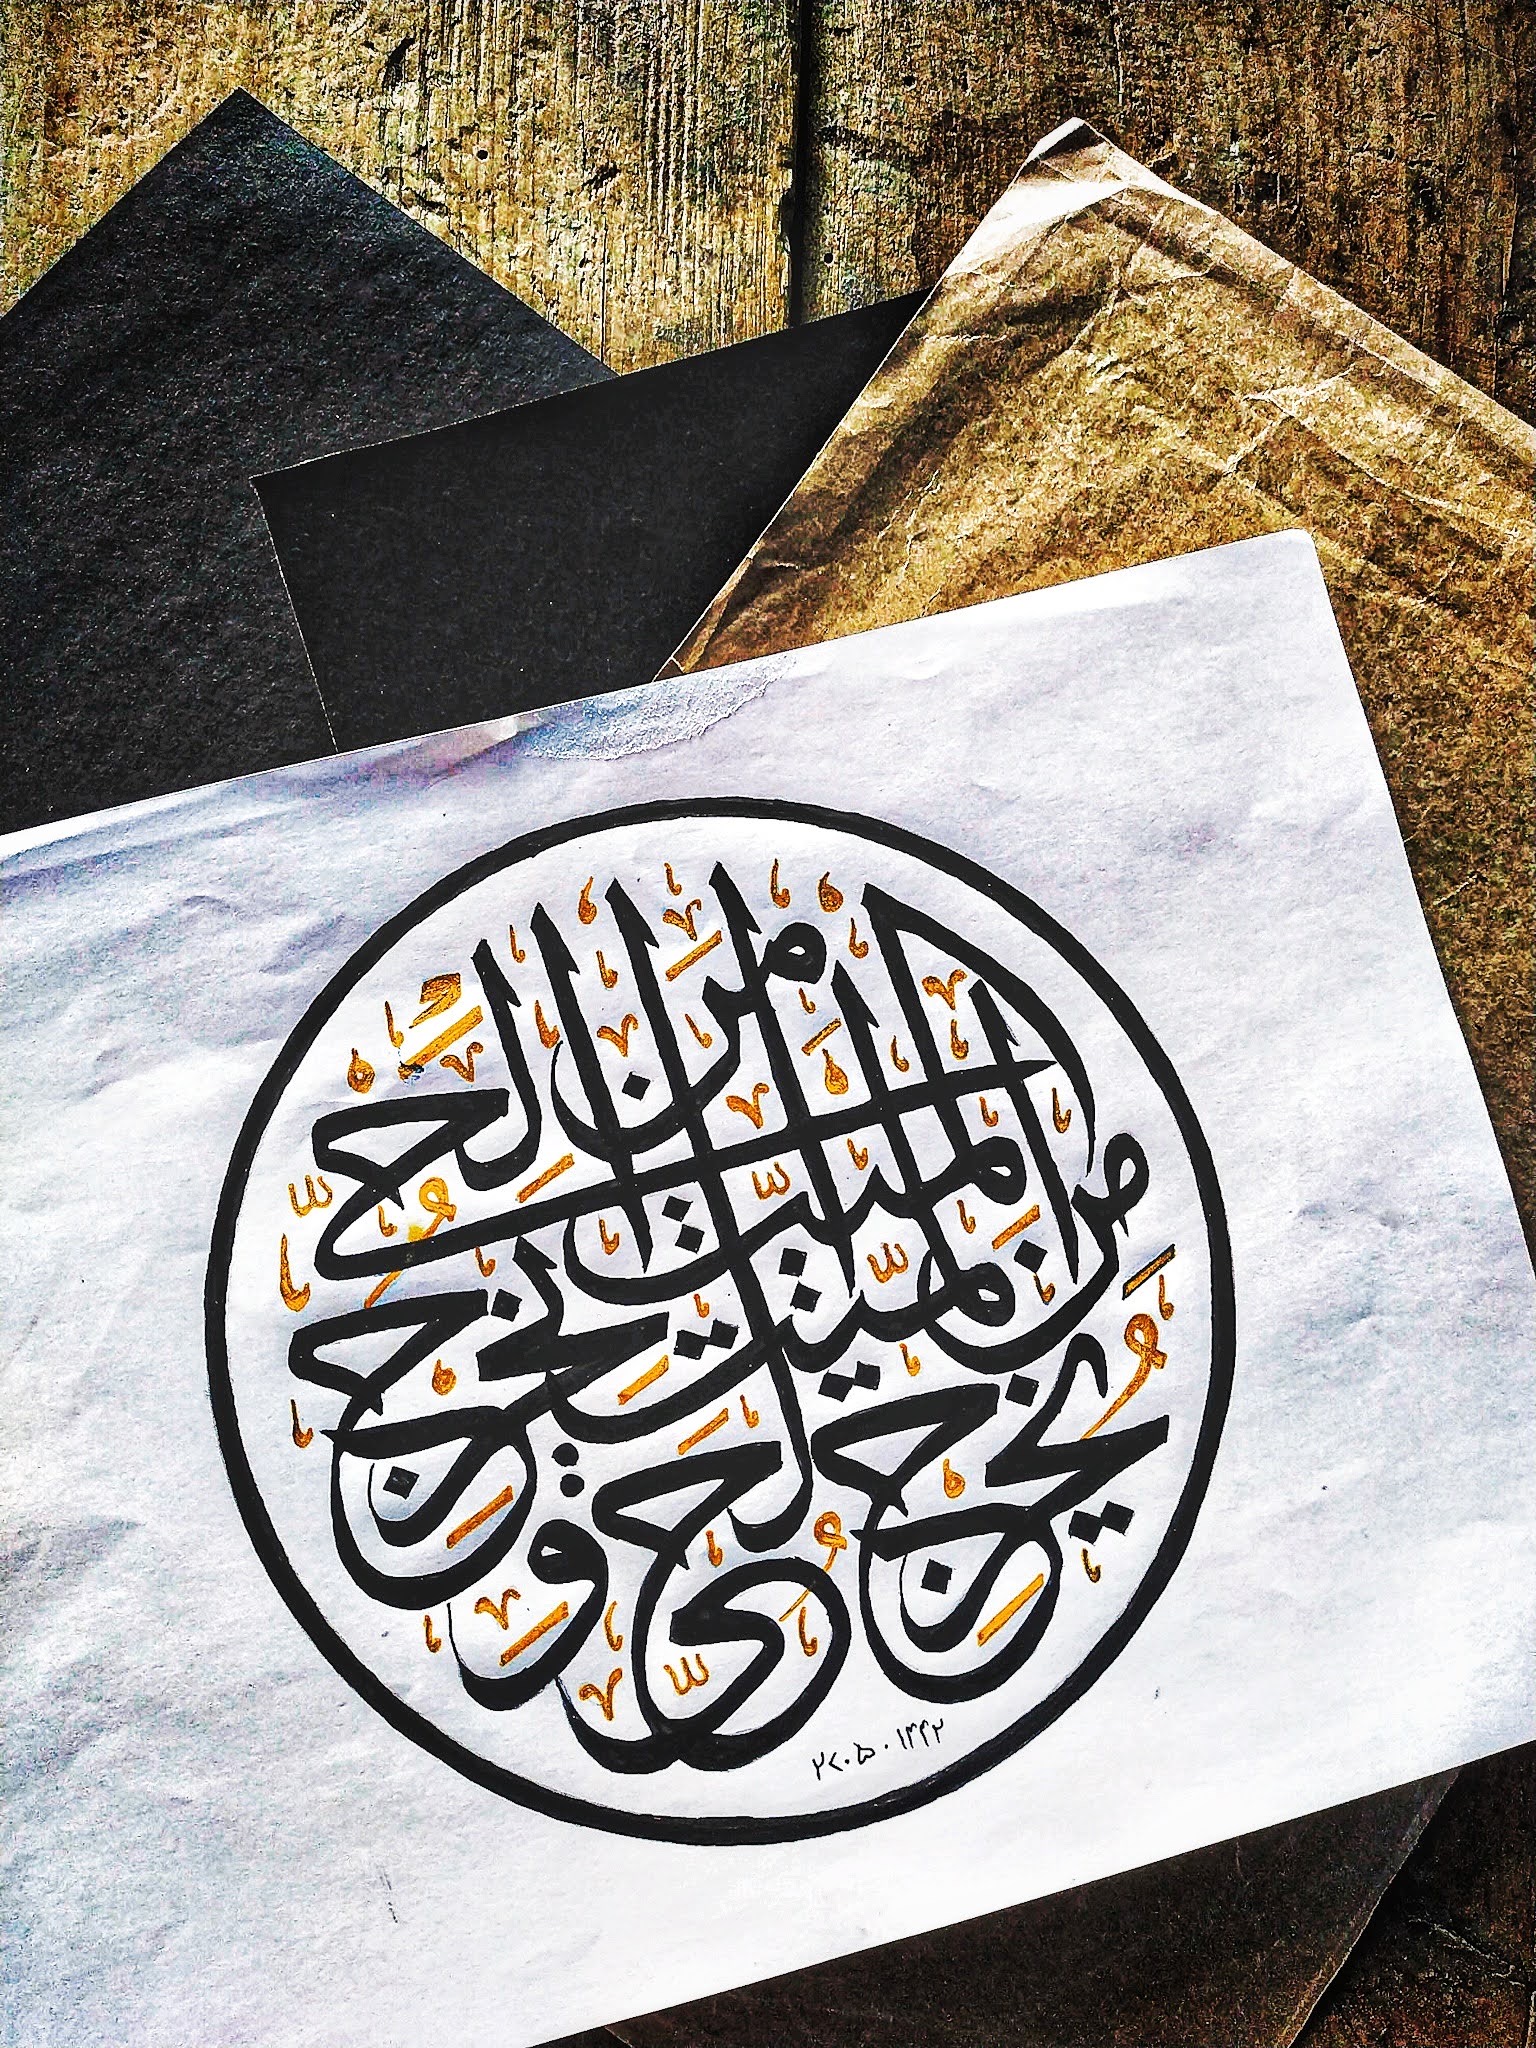 يُخْرِجُ الْحَيَّ مِنَ الْمَيِّتِ وَيُخْرِجُ الْمَيِّتَ مِنَ الْحَيِّ